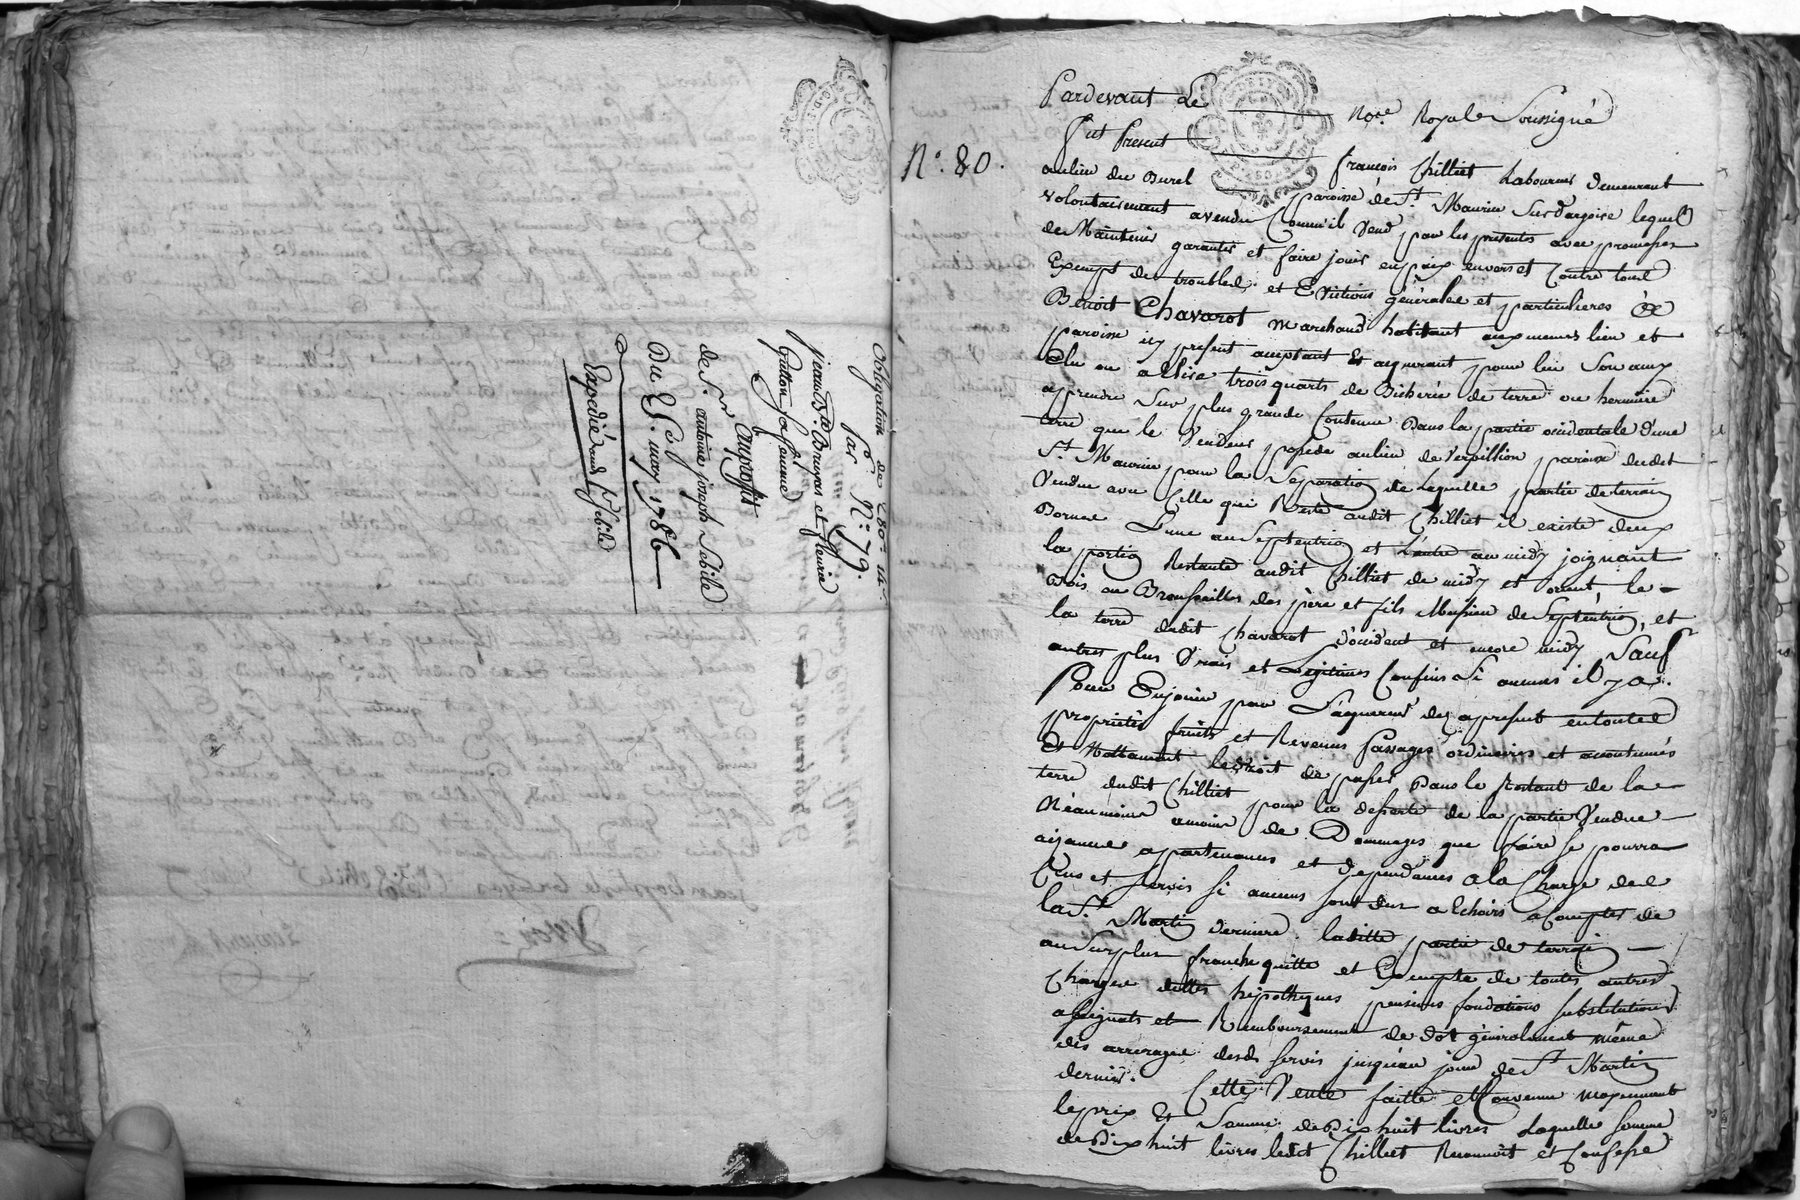 Obligation de 280# 14s
par N.° 79.
jean Bte. Bruyas et fleurie
Gutton sa femme
Au proffit
de Sr. antoine joseph Sebile
Du 5e. may 1786
Expedié aud. Sr. Sebile
N.° 80.
Pardevant Le Nore. Royal Soussigné
fut Present françois Chilliet Laboureur demeurant
aulieu du Burel paroisse de St. Maurice Surdargoire lequel
volontairement avendu Comm'il Vend par les presentes avec promesses
de Maintenir garantir et faire jouir en paix envers et Contre tous
Exempt de troubles et Evictions générales et particulieres à
Benoit Chavarot marchand habitant aux memes lieu et
paroisse icy present acceptant et acquerant pour lui Son amy
Elu ou a Elire trois quarts de Bicherée de terre ou hermure
aprendre Sur plus grande Contenue Dans la partie occidentale d'une
terre que le Vendeur possede aulieu de Verpillion paroisse dudit
St. Maurice pour la Separation de laquelle partie de terrain
Vendue avec Celle qui Reste audit Chilliet il existe deux
Bornes L'une au Septentrion et L'autre au midy joignant
la portion Restante audit Chilliet de midy et orient le
Bois ou Broussailles des père et fils Messieu de Septentrion, et
la terre dudit Chavarot d'occident et encore midy Sauf
autres plus Vrais et Legitimes Confins Si aucuns il y a.
Pour Enjouir par L'aquereur des apresent entoutes
proprietés fruits et Revenus passages ordinaires et accoutumés
Et Nottament ledroit de passer Dans le Restant de la
terre dudit Chilliet pour la deserte de la partie Vendue
Néanmoins amoins de Dommages que faire se pourra
aisances apartenances et dependances ala Charge des
Cens et Servis Si aucuns Sont dus a Echoirs acompter de
la St. Martin derniere laditte partie de terrain
au Surplus franche quitte et Exempte de toutes autres
Charges dettes hypotheques pensions fondations substitutions
assignats et Remboursements de dot généralement même
des arrerages desd. Servis jusqu'au jour de St. Martin
dernier. Cette Vente faitte et Convenue moyennant
leprix Et Somme de Dix huit livres Laquelle Somme
de Dix huit livres ledit Chilliet Reconnoit et Confesse